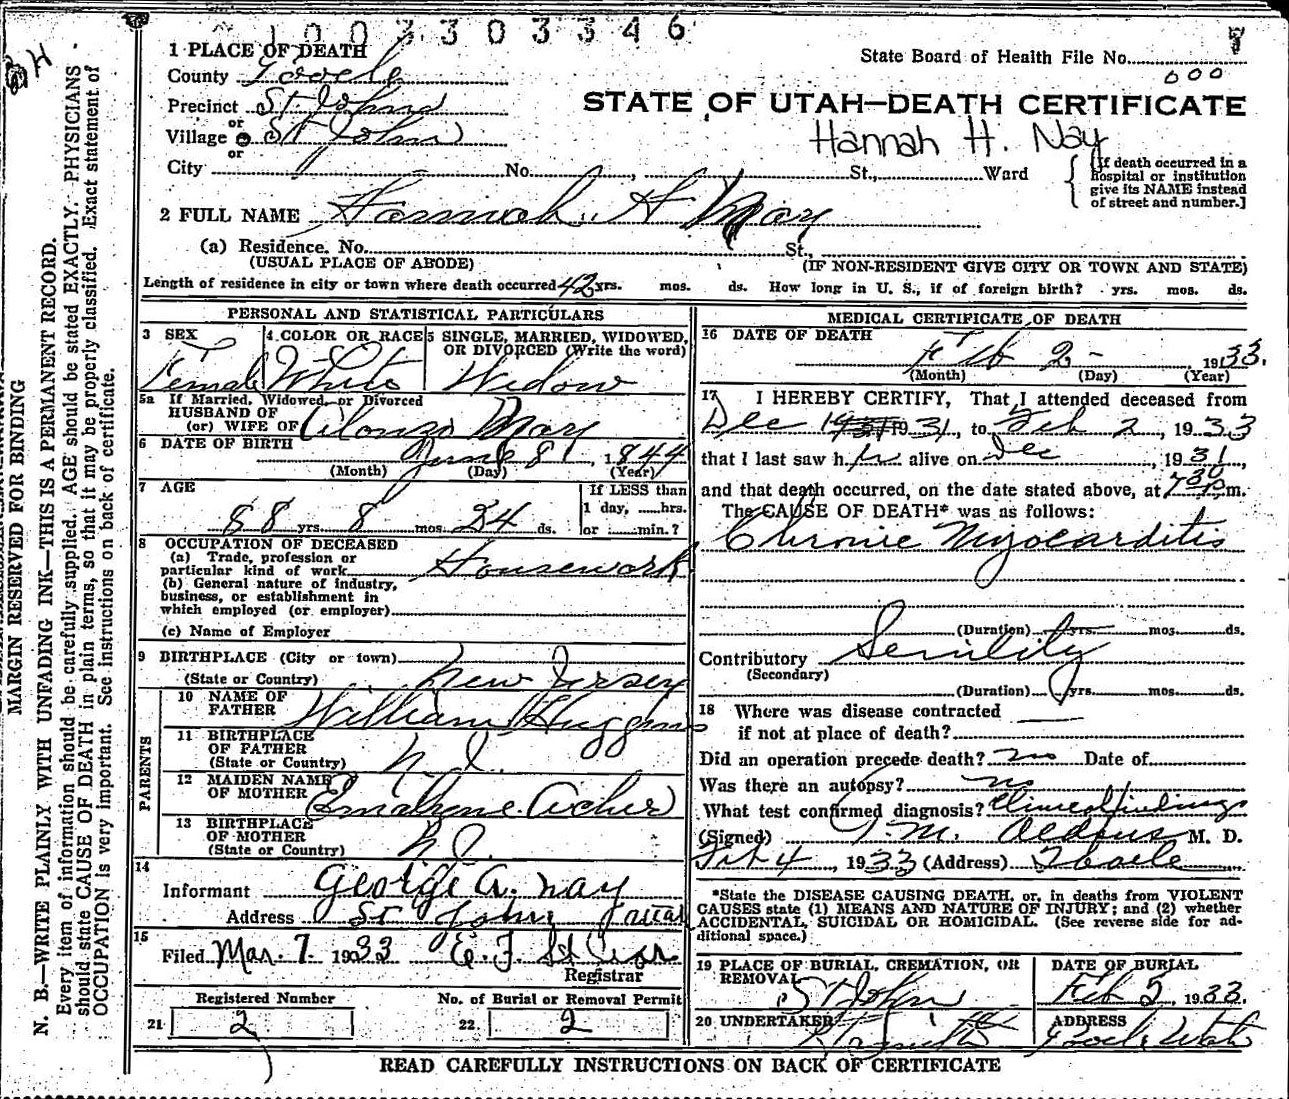 1003303346
1 PLACE OF DEATH
State Board of Health File No. 7
000
County Tooele
Precinct St. Johns
or
Village St John
or
City No. , St., Ward
STATE OF UTAH—DEATH CERTIFICATE
Hannah H. Nay
[If death occurred in a hospital or institution give its NAME instead of street and number.]
2 FULL NAME Hannah H Nay
(a) Residence. No. St.,
(USUAL PLACE OF ABODE) (IF NON-RESIDENT GIVE CITY OR TOWN AND STATE)
Length of residence in city or town where death occurred 42 yrs. mos. ds. How long in U. S., if of foreign birth? yrs. mos. ds.
PERSONAL AND STATISTICAL PARTICULARS
3 SEX
Female
4 COLOR OR RACE
White
5 SINGLE, MARRIED, WIDOWED,
OR DIVORCED (Write the word)
Widow
5a If Married, Widowed, or Divorced
HUSBAND OF
(or) WIFE OF Alonzo Nay
6 DATE OF BIRTH June 8 1844
(Month) (Day) (Year)
7 AGE
88 yrs. 8 mos. 24 ds.
If LESS than
1 day, hrs.
or min.?
8 OCCUPATION OF DECEASED
(a) Trade, profession or
particular kind of work Housework
(b) General nature of industry,
business, or establishment in
which employed (or employer)
(c) Name of Employer
9 BIRTHPLACE (City or town)
(State or Country) New Jersey
PARENTS
10 NAME OF
FATHER William Huggins
11 BIRTHPLACE
OF FATHER
(State or Country) N. J.
12 MAIDEN NAME
OF MOTHER
13 BIRTHPLACE
OF MOTHER
(State or Country) N J.
14
Informant George A. Nay
Address St John Utah
15
Filed Mar. 7 1933 E. F. St Clair
Registrar
Registered Number No. of Burial or Removal Permit
21 2 22 2
MEDICAL CERTIFICATE OF DEATH
16 DATE OF DEATH
Feb 2 - 1933.
(Month) (Day) (Year)
17 I HEREBY CERTIFY, That I attended deceased from
Dec 1931, to Feb 2, 1933
that I last saw her alive on Dec, 1931,
and that death occurred, on the date stated above, at 7 30 Pm.
The CAUSE OF DEATH* was as follows:
Chronic Myocarditis
(Duration) yrs. mos. ds.
Contributory Senility
(Secondary)
(Duration) yrs. mos. ds.
18 Where was disease contracted
if not at place of death?
Did an operation precede death? no Date of
Was there an autopsy? no
What test confirmed diagnosis? Clinical findings
(Signed) J. M. Aldous M. D.
Feb 4, 1933 (Address) Tooele
*State the DISEASE CAUSING DEATH, or, in deaths from VIOLENT
CAUSES state (1) MEANS AND NATURE OF INJURY; and (2) whether
ACCIDENTAL, SUICIDAL OR HOMICIDAL. (See reverse side for ad-
ditional space.)
19 PLACE OF BURIAL, CREMATION, OR
REMOVAL
St John
DATE OF BURIAL
Feb 5, 1933.
20 UNDERTAKER
ADDRESS
Tooele Utah
READ CAREFULLY INSTRUCTIONS ON BACK OF CERTIFICATE
MARGIN RESERVED FOR BINDING
N. B.—WRITE PLAINLY WITH UNFADING INK—THIS IS A PERMANENT RECORD.
Every item of information should be carefully supplied. AGE should be stated EXACTLY. PHYSICIANS
should state CAUSE OF DEATH in plain terms, so that it may be properly classified. Exact statement of
OCCUPATION is very important. See instructions on back of certificate.